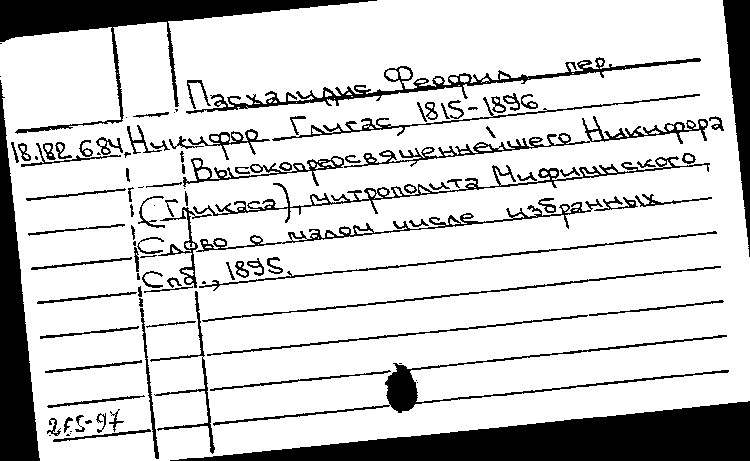 Пасхалидис, Феофил, пер.
18.182.6.84. Никифор Гликас, 1815-1896.
Высокопреосвященнейшего Никифора
(Гликаса), митрополита Мифимнского,
Слово о малом числе избранных.
Спб., 1895.
265-97